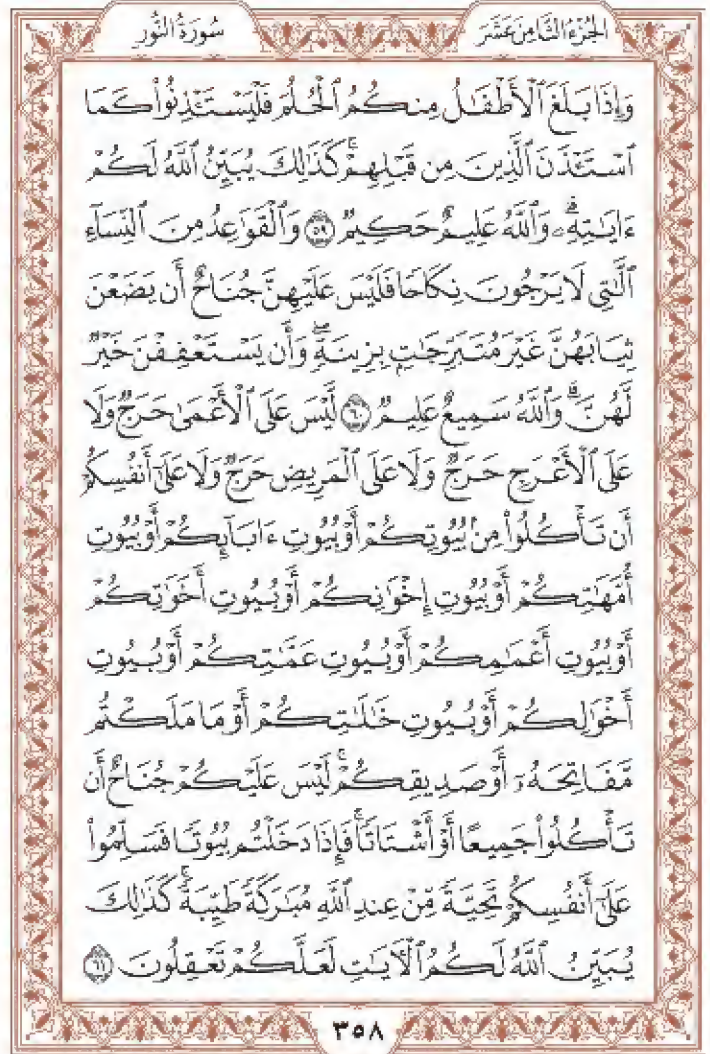 الجُزْءُ الثَّامِنَ عَشَرَ
سُورَةُ النُّورِ
وَإِذَا بَلَغَ ٱلْأَطْفَٰلُ مِنكُمُ ٱلْحُلُمَ فَلْيَسْتَـْٔذِنُوا۟ كَمَا
ٱسْتَـْٔذَنَ ٱلَّذِينَ مِن قَبْلِهِمْ ۚ كَذَٰلِكَ يُبَيِّنُ ٱللَّهُ لَكُمْ
ءَايَٰتِهِۦ ۗ وَٱللَّهُ عَلِيمٌ حَكِيمٌ ۝٥٩ وَٱلْقَوَٰعِدُ مِنَ ٱلنِّسَآءِ
ٱلَّٰتِى لَا يَرْجُونَ نِكَاحًا فَلَيْسَ عَلَيْهِنَّ جُنَاحٌ أَن يَضَعْنَ
ثِيَابَهُنَّ غَيْرَ مُتَبَرِّجَٰتٍۭ بِزِينَةٍ ۖ وَأَن يَسْتَعْفِفْنَ خَيْرٌ
لَّهُنَّ ۗ وَٱللَّهُ سَمِيعٌ عَلِيمٌ ۝٦٠ لَّيْسَ عَلَى ٱلْأَعْمَىٰ حَرَجٌ وَلَا
عَلَى ٱلْأَعْرَجِ حَرَجٌ وَلَا عَلَى ٱلْمَرِيضِ حَرَجٌ وَلَا عَلَىٰٓ أَنفُسِكُمْ
أَن تَأْكُلُوا۟ مِنۢ بُيُوتِكُمْ أَوْ بُيُوتِ ءَابَآئِكُمْ أَوْ بُيُوتِ
أُمَّهَٰتِكُمْ أَوْ بُيُوتِ إِخْوَٰنِكُمْ أَوْ بُيُوتِ أَخَوَٰتِكُمْ
أَوْ بُيُوتِ أَعْمَٰمِكُمْ أَوْ بُيُوتِ عَمَّٰتِكُمْ أَوْ بُيُوتِ
أَخْوَٰلِكُمْ أَوْ بُيُوتِ خَٰلَٰتِكُمْ أَوْ مَا مَلَكْتُم
مَّفَاتِحَهُۥٓ أَوْ صَدِيقِكُمْ ۚ لَيْسَ عَلَيْكُمْ جُنَاحٌ أَن
تَأْكُلُوا۟ جَمِيعًا أَوْ أَشْتَاتًا ۚ فَإِذَا دَخَلْتُم بُيُوتًا فَسَلِّمُوا۟
عَلَىٰٓ أَنفُسِكُمْ تَحِيَّةً مِّنْ عِندِ ٱللَّهِ مُبَٰرَكَةً طَيِّبَةً ۚ كَذَٰلِكَ
يُبَيِّنُ ٱللَّهُ لَكُمُ ٱلْءَايَٰتِ لَعَلَّكُمْ تَعْقِلُونَ ۝٦١
٣٥٨